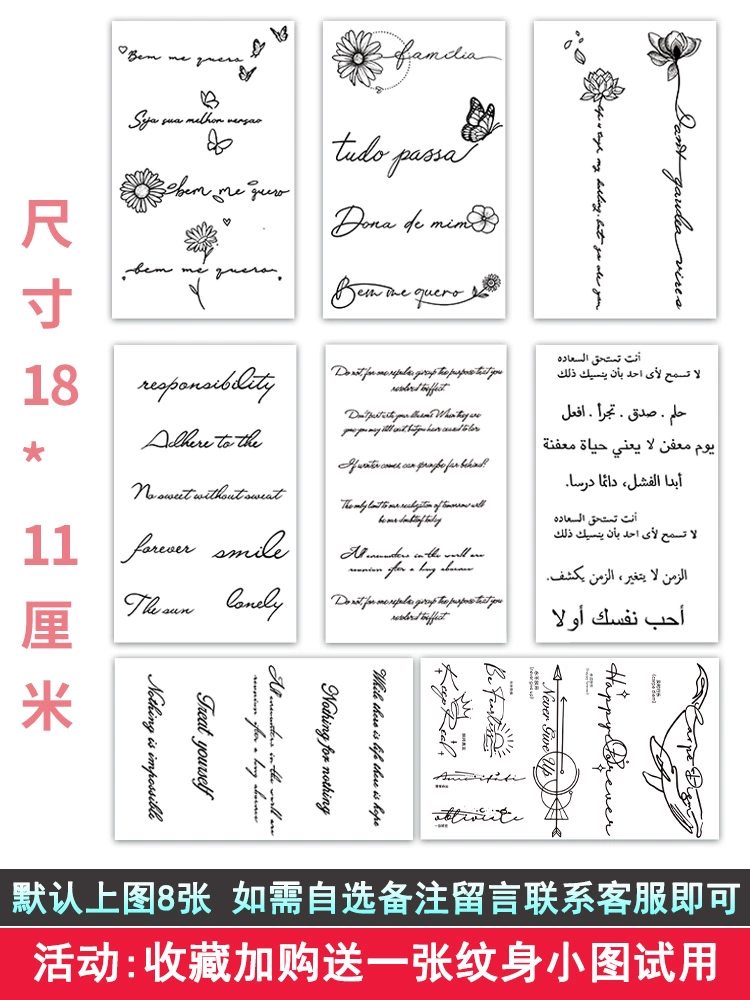 尺寸18*11厘米
Bem me quero
Seja sua melhor versao
bem me quero
bem me quero
família
tudo passa
Dona de mim
Bem me quero
Dant gaudia vires
responsibility
Adhere to the
No sweet without sweat
forever smile
The sun lonely
If winter comes, can spring be far behind?
The only limit to our realization of tomorrow will
be our doubts of today
All encounters in the world are
reunion after a long absence
أنت تستحق السعاده
لا تسمح لأى احد بأن ينسيك ذلك
حلم . صدق . تجرأ . افعل
يوم معفن لا يعني حياة معفنة
أبدا الفشل، دائما درسا.
أنت تستحق السعاده
لا تسمح لأى احد بأن ينسيك ذلك
الزمن لا يتغير، الزمن يكشف.
أحب نفسك أولا
Nothing is impossible
Treat yourself
All encounters in the world are
reunion after a long absence
Nothing for nothing
While there is life there is hope
Keep Real
Be fearless
Never Give Up
Happy Forever
Carpe Diem
默认上图8张 如需自选备注留言联系客服即可
活动:收藏加购送一张纹身小图试用